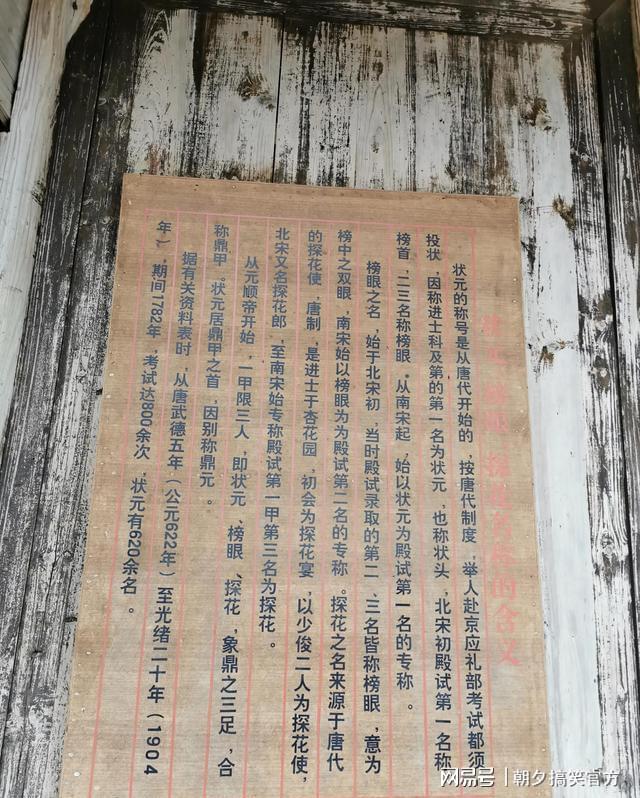 状元、榜眼、探花名称的含义
状元的称号是从唐代开始的，按唐代制度，举人赴京应礼部考试都须
投状，因称进士科及第的第一名为状元，也称状头，北宋初殿试第一名称
榜首，二三名称榜眼。从南宋起，始以状元为殿试第一名的专称。
榜眼之名，始于北宋初，当时殿试录取的第二、三名皆称榜眼，意为
榜中之双眼，南宋始以榜眼为为殿试第二名的专称。探花之名来源于唐代
的探花使，唐制，是进士于杏花园，初会为探花宴，以少俊二人为探花使，
北宋又名探花郎，至南宋始专称殿试第一甲第三名为探花。
从元顺帝开始，一甲限三人，即状元、榜眼、探花，象鼎之三足，合
称鼎甲。状元居鼎甲之首，因别称鼎元。
据有关资料表时，从唐武德五年（公元622年）至光绪二十年（1904
年），期间1782年，考试达800余次，状元有620余名。
网易号 | 朝夕搞笑官方